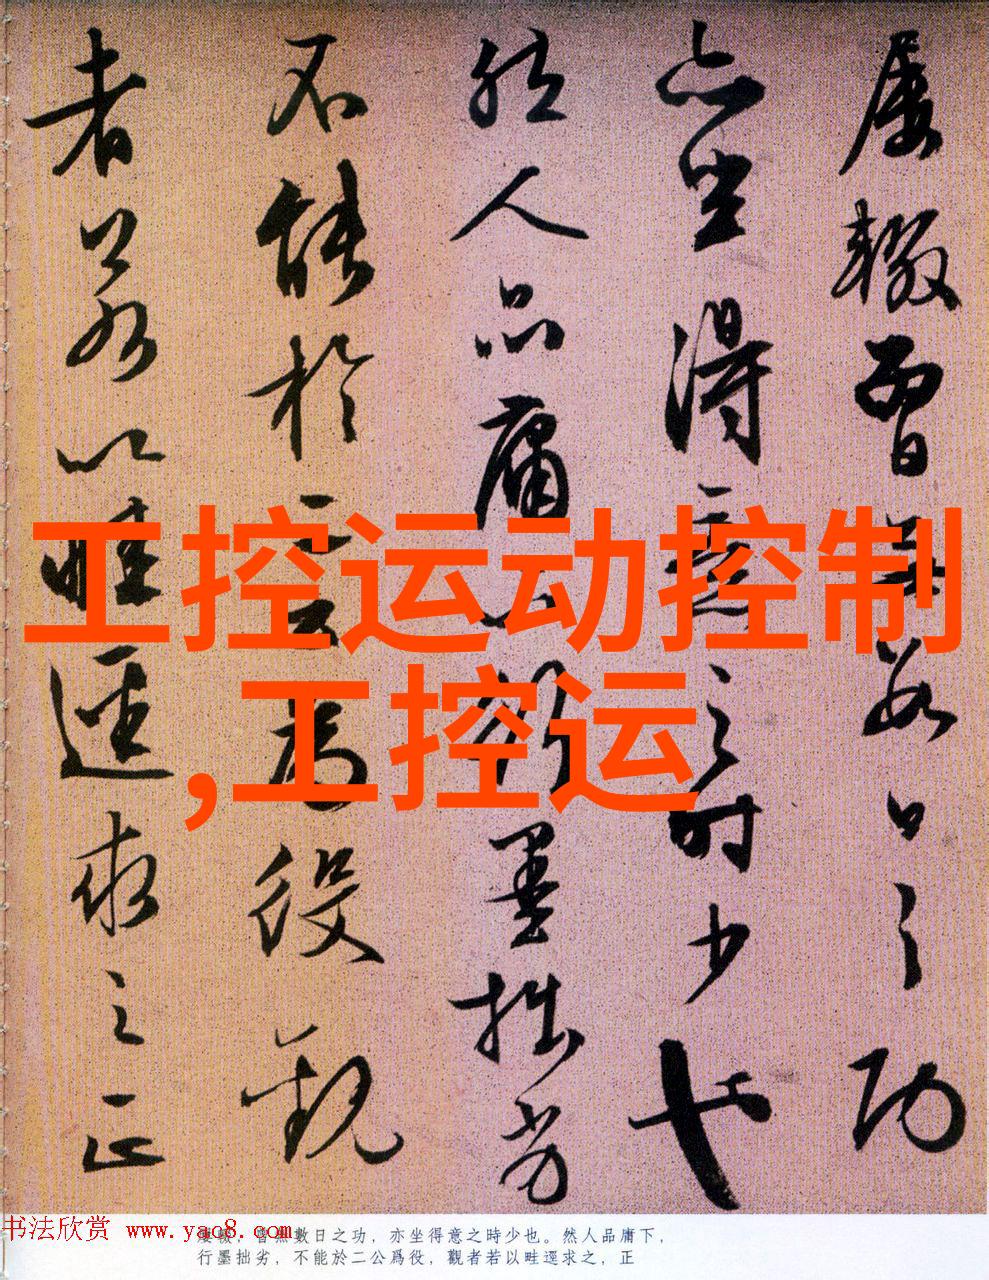 屢輟曾無數日之功
亦坐得意之時少也
然人品庸下行墨拙劣
不能於二公為役觀
者若以畦逕求之正
工控运动控制
,工控运
书法欣赏 www.yac8.com
屢輟，曾無數日之功，亦坐得意之時少也。然人品庸下，
行墨拙劣，不能於二公爲役，觀者若以畦逕求之，正